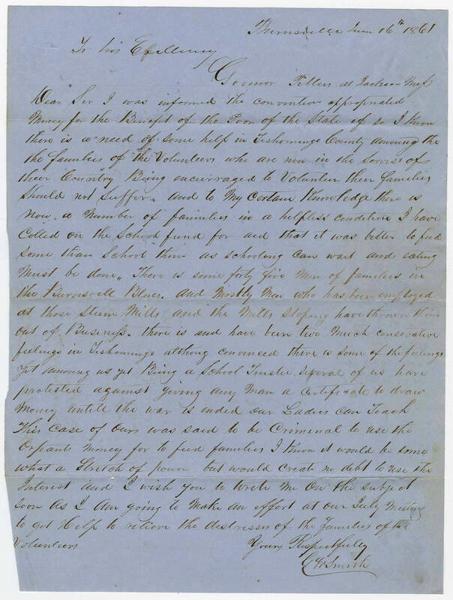 June 16th 1861
To his Excellency
Governor Pettus at Jackson Miss
Dear Sir I was informed the convention appropriated
Money for the Benefit of the Poor of the State if so I know
there is a need of some help in Tishomingo County among the
the families of the Volunteers who are now in the Servis of
their Country Being encurraged to Volunteer their families
Should not Suffer. and to My Certain Knowledge there is
now a Number of families in a helpless condition I have
Called on the School fund for aid that it was better to feed
some than School them as schooling can wait and eating
Must be done. There is some forty five Men of families in
the Blues. and Mostly Men who has been employed
at those Steam Mills and the Mills stoping have thrown them
out of Business. there is and have been two Much conservative
feelings in Tishomingo althoug convinced there is some of the feelings
yet among us yet Being a School Trustee several of us have
protested against giving any Man a Certificate to draw
Money untill the war is ended our Ladies Can Teach
This Case of Ours was said to be Criminal to use the
Orphants money for to feed families I know it would be some
what a Stretch of power but would Create no debt to use the
Interest and I wish you to Wrote me On the subject
soon As I am going to make an effort at our July Meeting
to get Help to relieve the distresses of the Families of the
Volunteers
Yours Respectfully
Smith